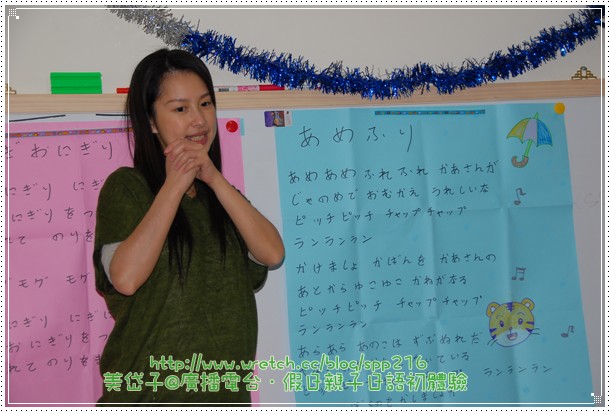 ぎ おにぎり
にぎり に
にぎり を つ
て のりを
モグ モ
にぎり に
おにぎり を つ
れて のりをま
あめふり
あめあめ ふれふれ かあさんが
じゃのめで おむかえ うれしいな
ピッチピッチ チャップチャップ
ランランラン
かけましょ かばんを かあさんの
あとから ゆこゆこ かねがなる
ピッチピッチ チャップチャップ
ランランラン
あらあら あのこは ずぶぬれだ
ている
ランランラン
http://www.wretch.cc/blog/spp216
美岱子@廣播電台・假日親子日語初體驗